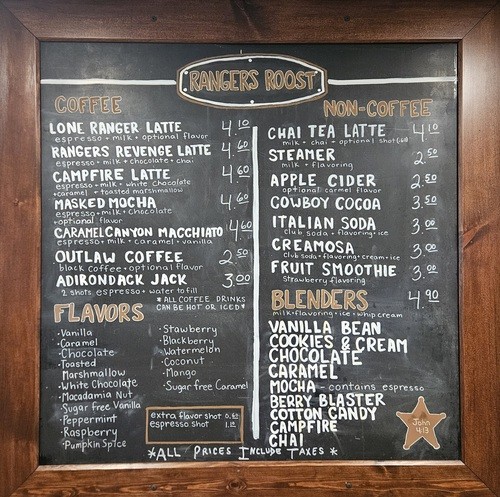 RANGERS ROOST
COFFEE
LONE RANGER LATTE 4.10
espresso + milk + optional flavor
RANGERS REVENGE LATTE 4.60
espresso + milk + chocolate + chai
CAMPFIRE LATTE 4.60
espresso + milk + white chocolate
+ caramel + toasted marshmallow
MASKED MOCHA 4.60
espresso + milk + chocolate
+ optional flavor
CARAMEL CANYON MACCHIATO 4.60
espresso + milk + caramel + vanilla
OUTLAW COFFEE 2.50
black coffee + optional flavor
ADIRONDACK JACK 3.00
2 shots espresso + water to fill
*ALL COFFEE DRINKS
CAN BE HOT OR ICED*
FLAVORS
·Vanilla
·Caramel
·Chocolate
·Toasted
Marshmallow
·White Chocolate
·Macadamia Nut
·Sugar free Vanilla
·Peppermint
·Raspberry
·Pumpkin Spice
·Stawberry
·Blackberry
·Watermelon
·Coconut
·Mango
·Sugar free Caramel
extra flavor shot
espresso shot
NON-COFFEE
CHAI TEA LATTE 4.10
milk + chai + optional shot
STEAMER 2.50
milk + flavoring
APPLE CIDER 2.50
optional carmel flavor
COWBOY COCOA 3.50
ITALIAN SODA 3.00
club soda + flavoring + ice
CREAMOSA 3.00
club soda + flavoring + cream + ice
FRUIT SMOOTHIE 3.00
Strawberry flavoring
BLENDERS 4.90
milk + flavoring + ice + whip cream
VANILLA BEAN
COOKIES & CREAM
CHOCOLATE
CARAMEL
MOCHA - contains espresso
BERRY BLASTER
COTTON CANDY
CAMPFIRE
CHAI
John
4:13
*ALL PRICES INCLUDE TAXES*